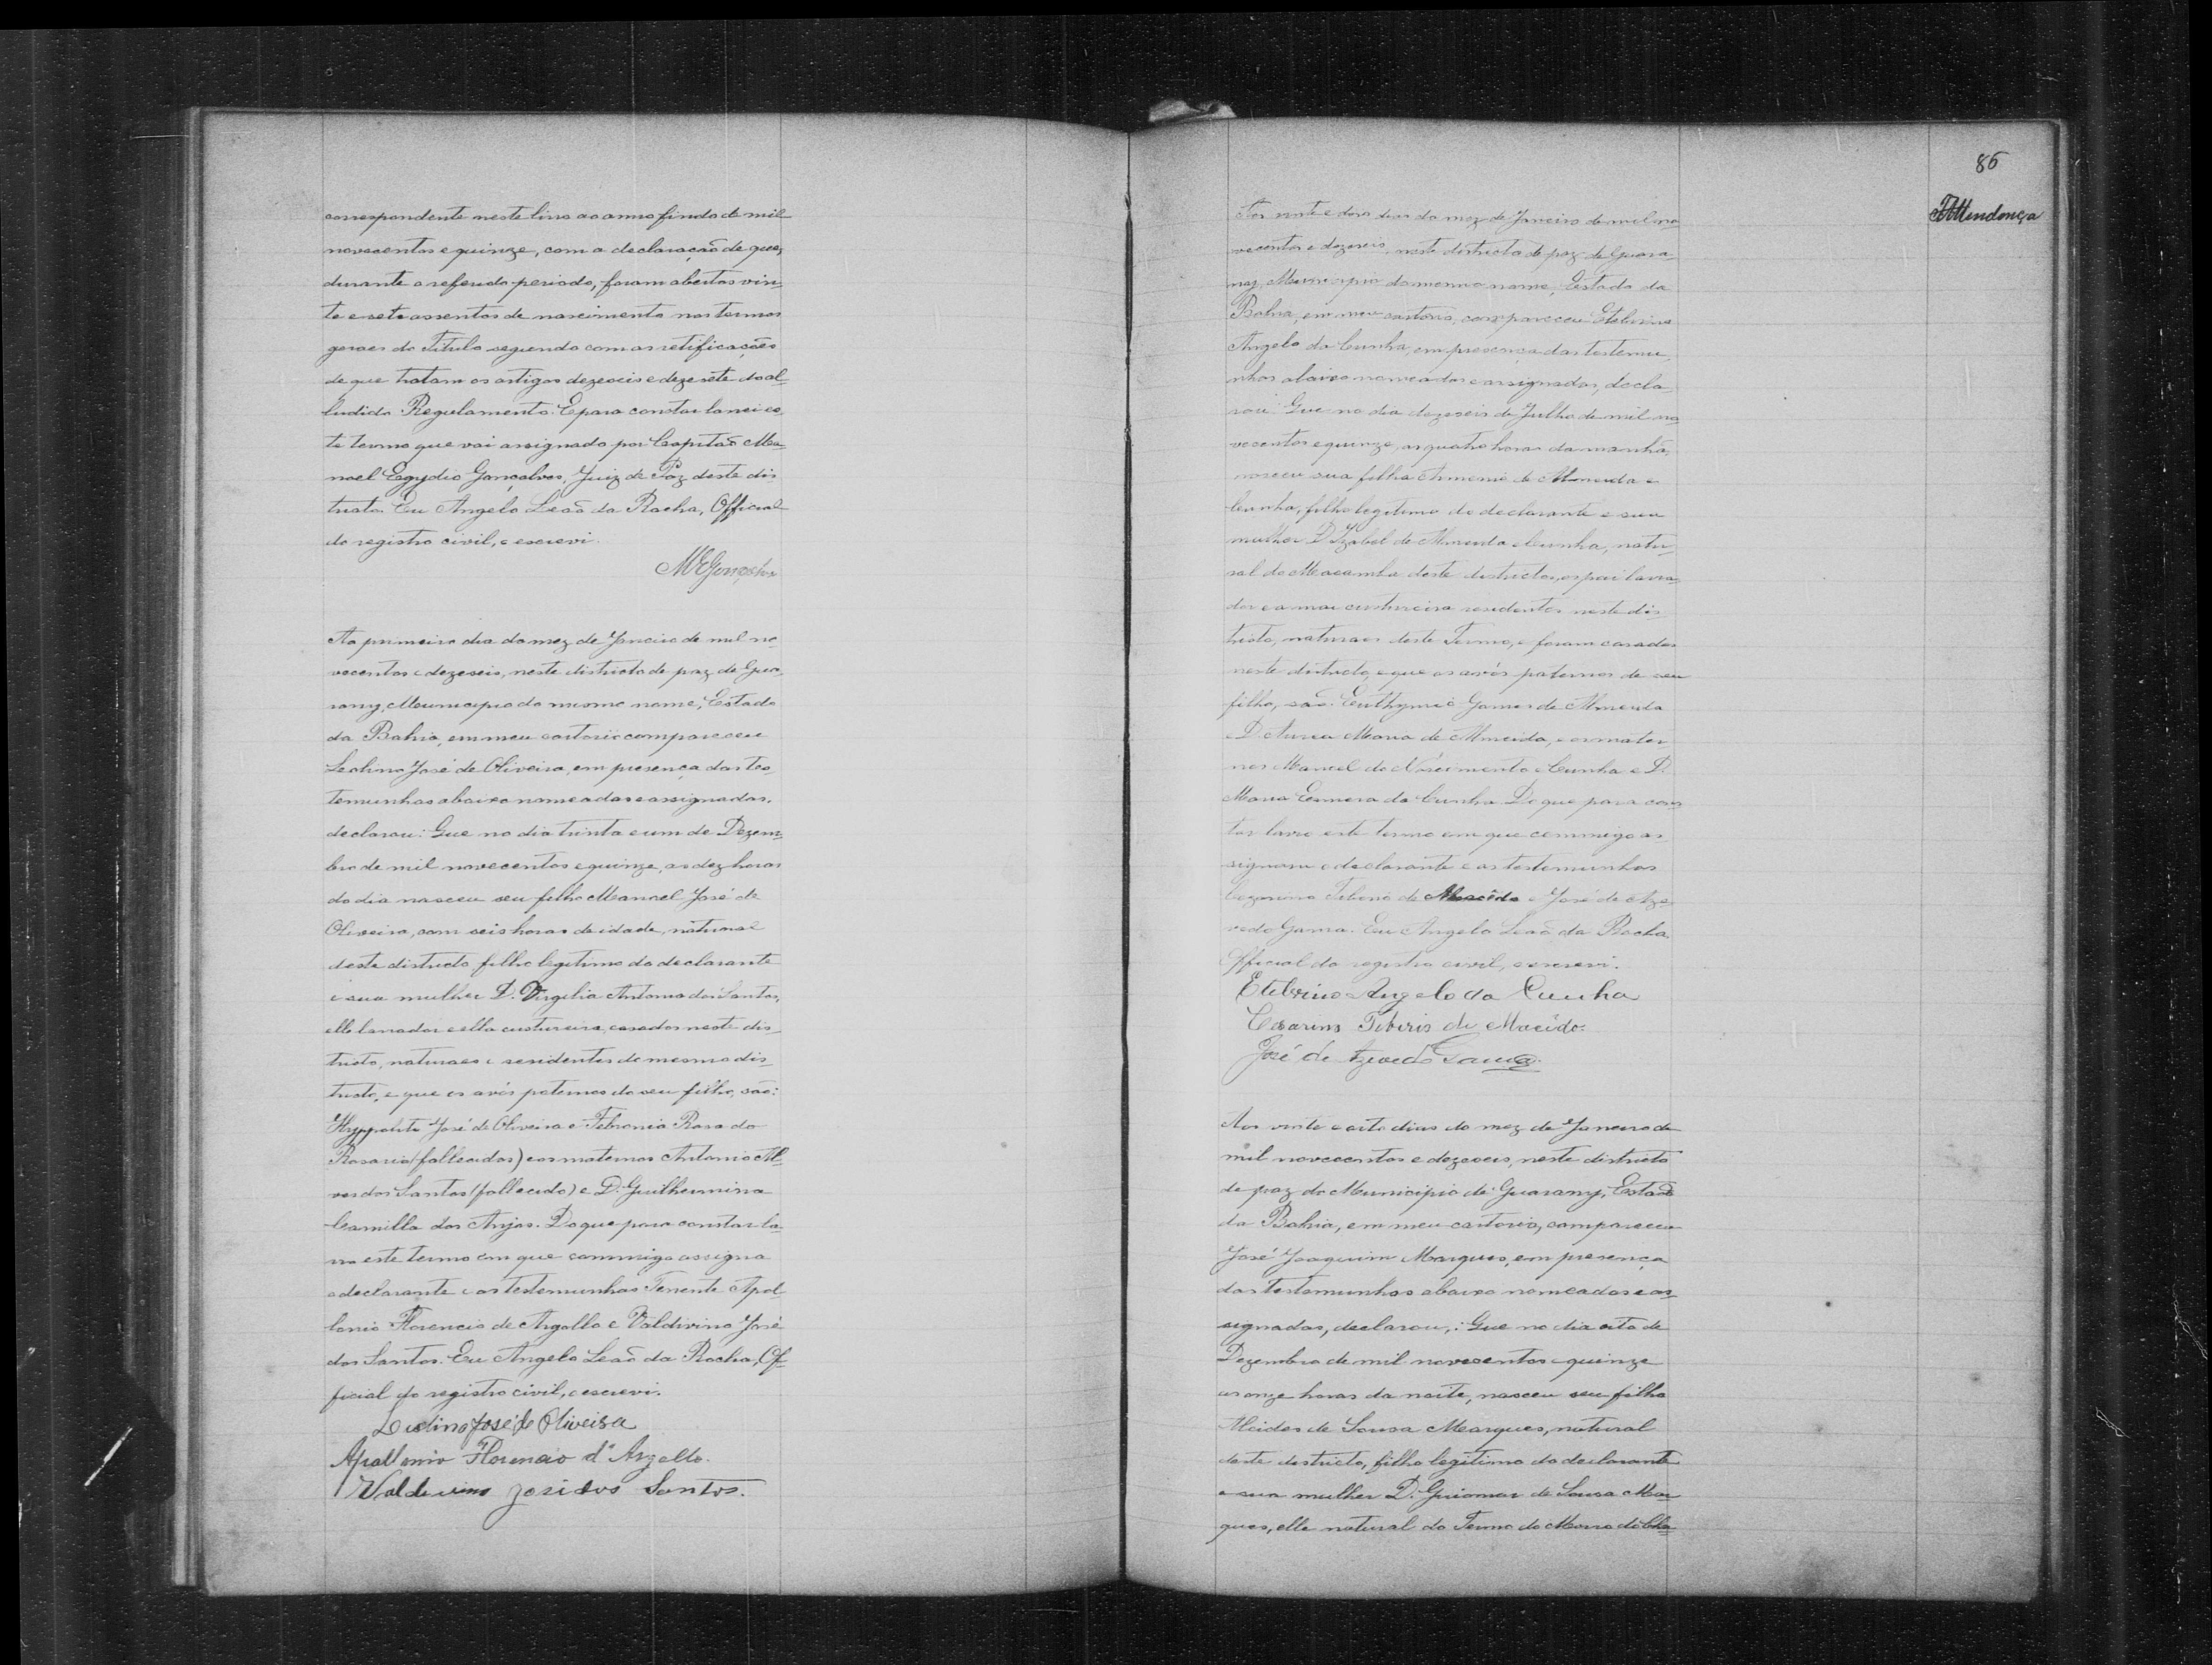 correspondente neste livro ao anno findo de mil
novecentos e quinze, com a declaração de que,
durante o referido periodo, foram abertos vin-
te e sete assentos de nascimento nos termos
geraes do Titulo segundo com as retificações
de que tratam os artigos dezeseis e dezesete do al-
ludido Regulamento. E para constar lancei es-
te termo que vai assignado por Capitão Ma-
noel Egydio Gonçalves, Juiz de Paz deste dis
tricto. Eu Angelo Leaõ da Rocha, Official
do registro civil, o escrevi.
MEGonçalves
Ao primeiro dia do mez de Janeiro de mil no-
vecentos e dezeseis, neste districto de paz de Gua-
rany, Municipio do mesmo nome, Estado
da Bahia, em meu cartorio compareceu
Leolino José de Oliveira, em presença das tes-
temunhas abaixo nomeadas e assignadas,
declarou: Que no dia trinta e um de Dezem-
bro de mil novecentos e quinze, as dez horas
do dia nasceu seu filho Manoel José de
Oliveira, com seis horas de idade, natural
deste districto filho legitimo do declarante
e sua mulher D. Virgilia Antonia dos Santos,
elle lavrador e ella custureira, casados neste dis-
tricto, naturaes e residentes do mesmo dis-
tricto, e que os avós paternos do seu filho, saõ:
Hyppolito José de Oliveira e Febronia Rosa do
Rosario (fallecidos) e os maternos Antonio Al-
ves dos Santos (fallecido) e D. Guilhermina
Camilla dos Anjos. Do que para constar la-
vro este termo em que commigo assigna
o declarante e as testemunhas Tenente Apol-
lonio Florencio de Argollo e Valdivino José
dos Santos. Eu Angelo Leaõ da Rocha, Of-
ficial do registro civil, o escrevi.
Leolino José de Oliveira
Apollonio Florencio d'Argollo.
Valdivino José dos Santos.
85
Mendonça
Aos vinte e dois dias do mez de Janeiro de mil no
vecentos e dezeseis, neste districto de paz de Guara-
ny, Municipio do mesmo nome, Estado da
Bahia, em meu cartorio, compareceu Etelvino
Angelo da Cunha, em presença das testemu-
nhas abaixo nomeadas e assignadas, decla-
rou: Que no dia dezeseis de Julho de mil no
vecentos e quinze, as quatro horas da manhã,
nasceu sua filha Armenia de Almeida e
Cunha, filho legitimo do declarante e sua
mulher D. Izabel de Almeida e Cunha, natu-
ral do Macamba deste districto, os pai lavra-
dor e a mae custureira residentes neste dis
tricto, naturaes deste Termo, e foram casados
neste districto, e que os avós paternos de seu
filho, saõ: Euthymio Gomes de Almeida
e D. Aurea Maria de Almeida, e os mater-
nos Manoel do Nascimento e Cunha e D.
Maria da Cunha. Do que para cons
tar lavro este termo em que commigo as
signam o declarante e as testemunhas
Cezarino Tiberio de Macêdo e José de Aze-
vedo Gama. Eu Angelo Leaõ da Rocha
Official do registro civil, o escrevi.
Etelvino Angelo da Cunha
Cesarino Tiberio de Macêdo.
José de Azevedo Gama.
Aos vinte e oito dias do mez de Janeiro de
mil novecentos e dezeseis, neste districto
de paz do Municipio de Guarany, Estado
da Bahia, em meu cartorio, compareceu
José Joaquim Marques, em presença
das testemunhas abaixo nomeadas e as-
signadas, declarou,: Que no dia oito de
Dezembro de mil novecentos e quinze
as onze horas da noite, nasceu seu filho
Alcides de Sousa Marques, natural
deste districto, filho legitimo do declarante
e sua mulher D. Guiomar de Sousa Mar
ques, elle natural do Termo do Morro do Cha-